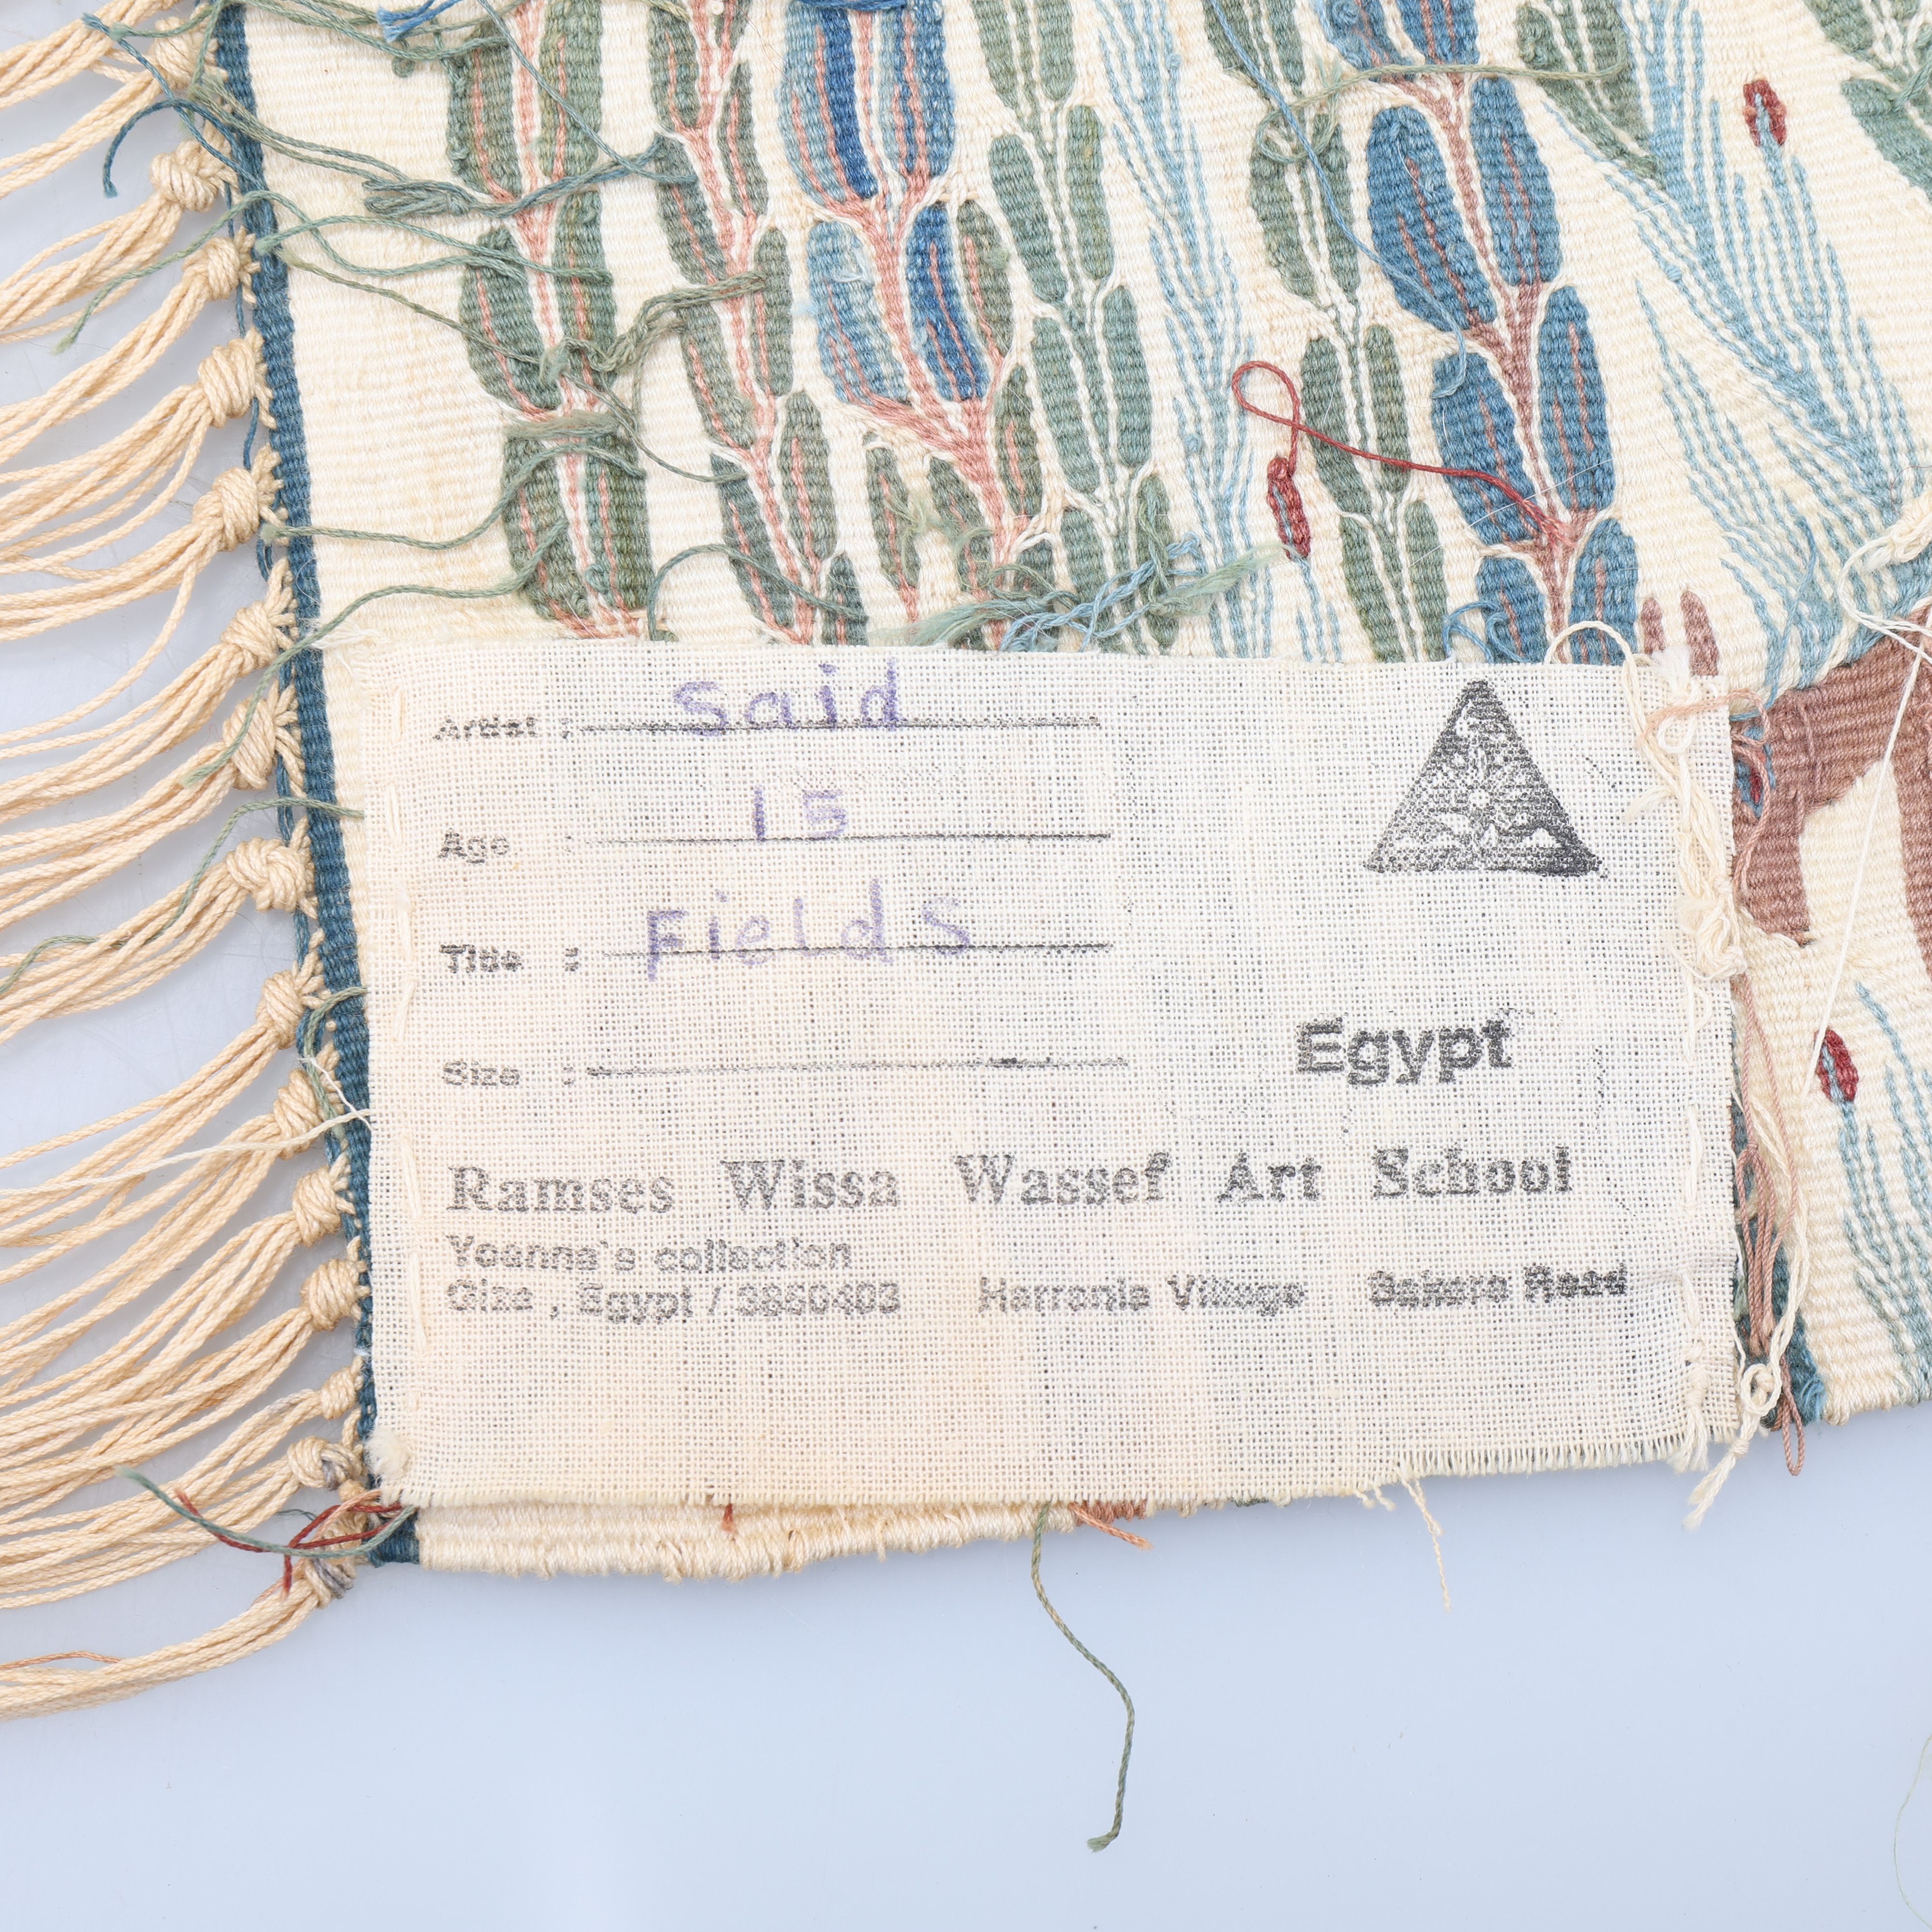 Artist : Said
Age : 15
Title : Fields
Size :
Egypt
Ramses Wissa Wassef Art School
Yoanna's collection
Giza , Egypt / 3850403 Harrania Village Sakara Road